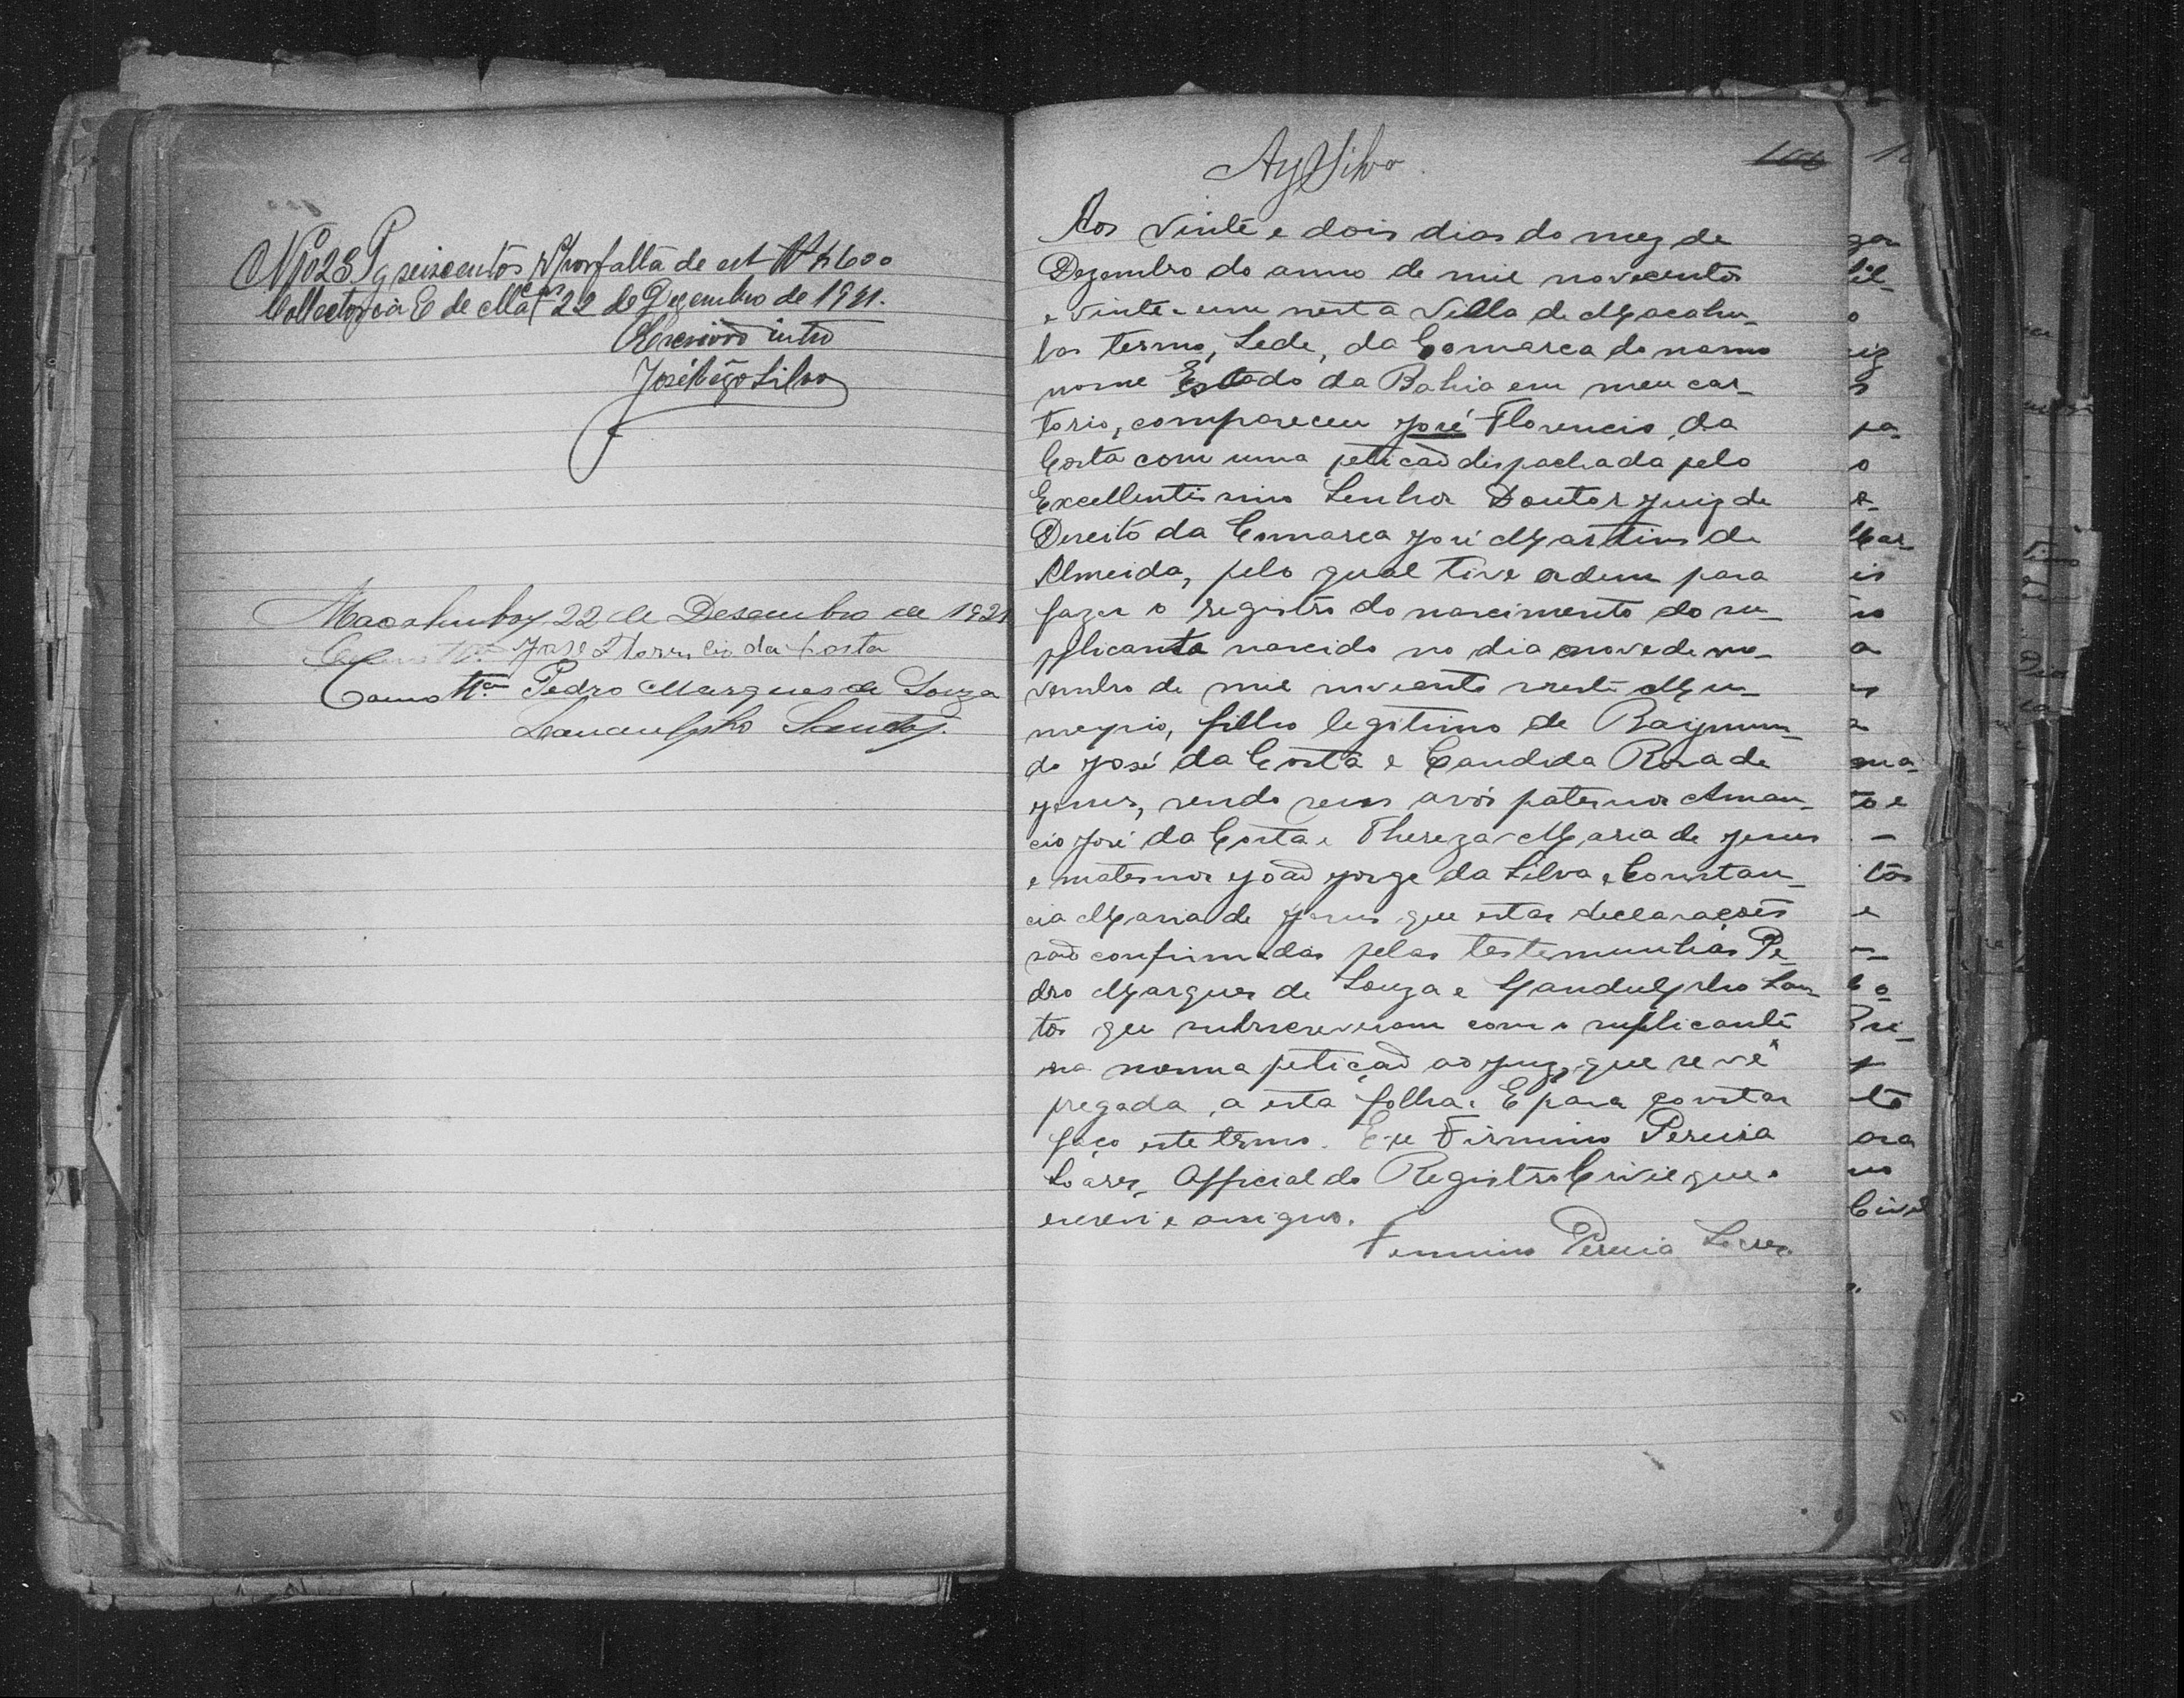 Nº 1023 Pg seiscentos rs por falta de est Rs $600
Collectoria E de Mac 22 de Dezembro de 1921.
O Escrivão intº
José Silva
Macahubas, 22 de Desembro de 1921
José Florencio da Costa
Como tª Pedro Marques de Souza
Santos.
AySilva
106
Aos vinte e dois dias do mez de
Dezembro do anno de mil novecentos
e vinte e um nesta Villa de Macahu-
bas termo, Sede, da Comarca do mesmo
nome Estado da Bahia em meu car-
torio, compareceu José Florencio da
Costa com uma petição dispachada pelo
Excellentissimo Senhor Doutor Juiz de
Direito da Comarca José Martins de
Almeida, pelo qual tive ordem para
fazer o registro do nascimento do su-
pplicante nascido no dia nove de no-
vembro de mil novecentos neste Mu-
necipio, filho legitimo de Raymun-
do José da Costa e Candida Rosa de
Jesus, sendo seus avós paternos Aman-
cio José da Costa e Thereza Maria de Jesus
e maternos João Jorge da Silva e Constan-
cia Maria de Jesus que estas declarações
são confirmadas pelas testemunhas Pe-
dro Marques de Souza e San-
tos que subscreveram com o supplicante
na mesma petição ao Juiz, que se vê
pregada a esta folha. E para constar
faço este termo. Eu Firmino Pereira
Soares, Official do Registro Civil que o
escrevi e assigno.
Firmino Pereira Soares